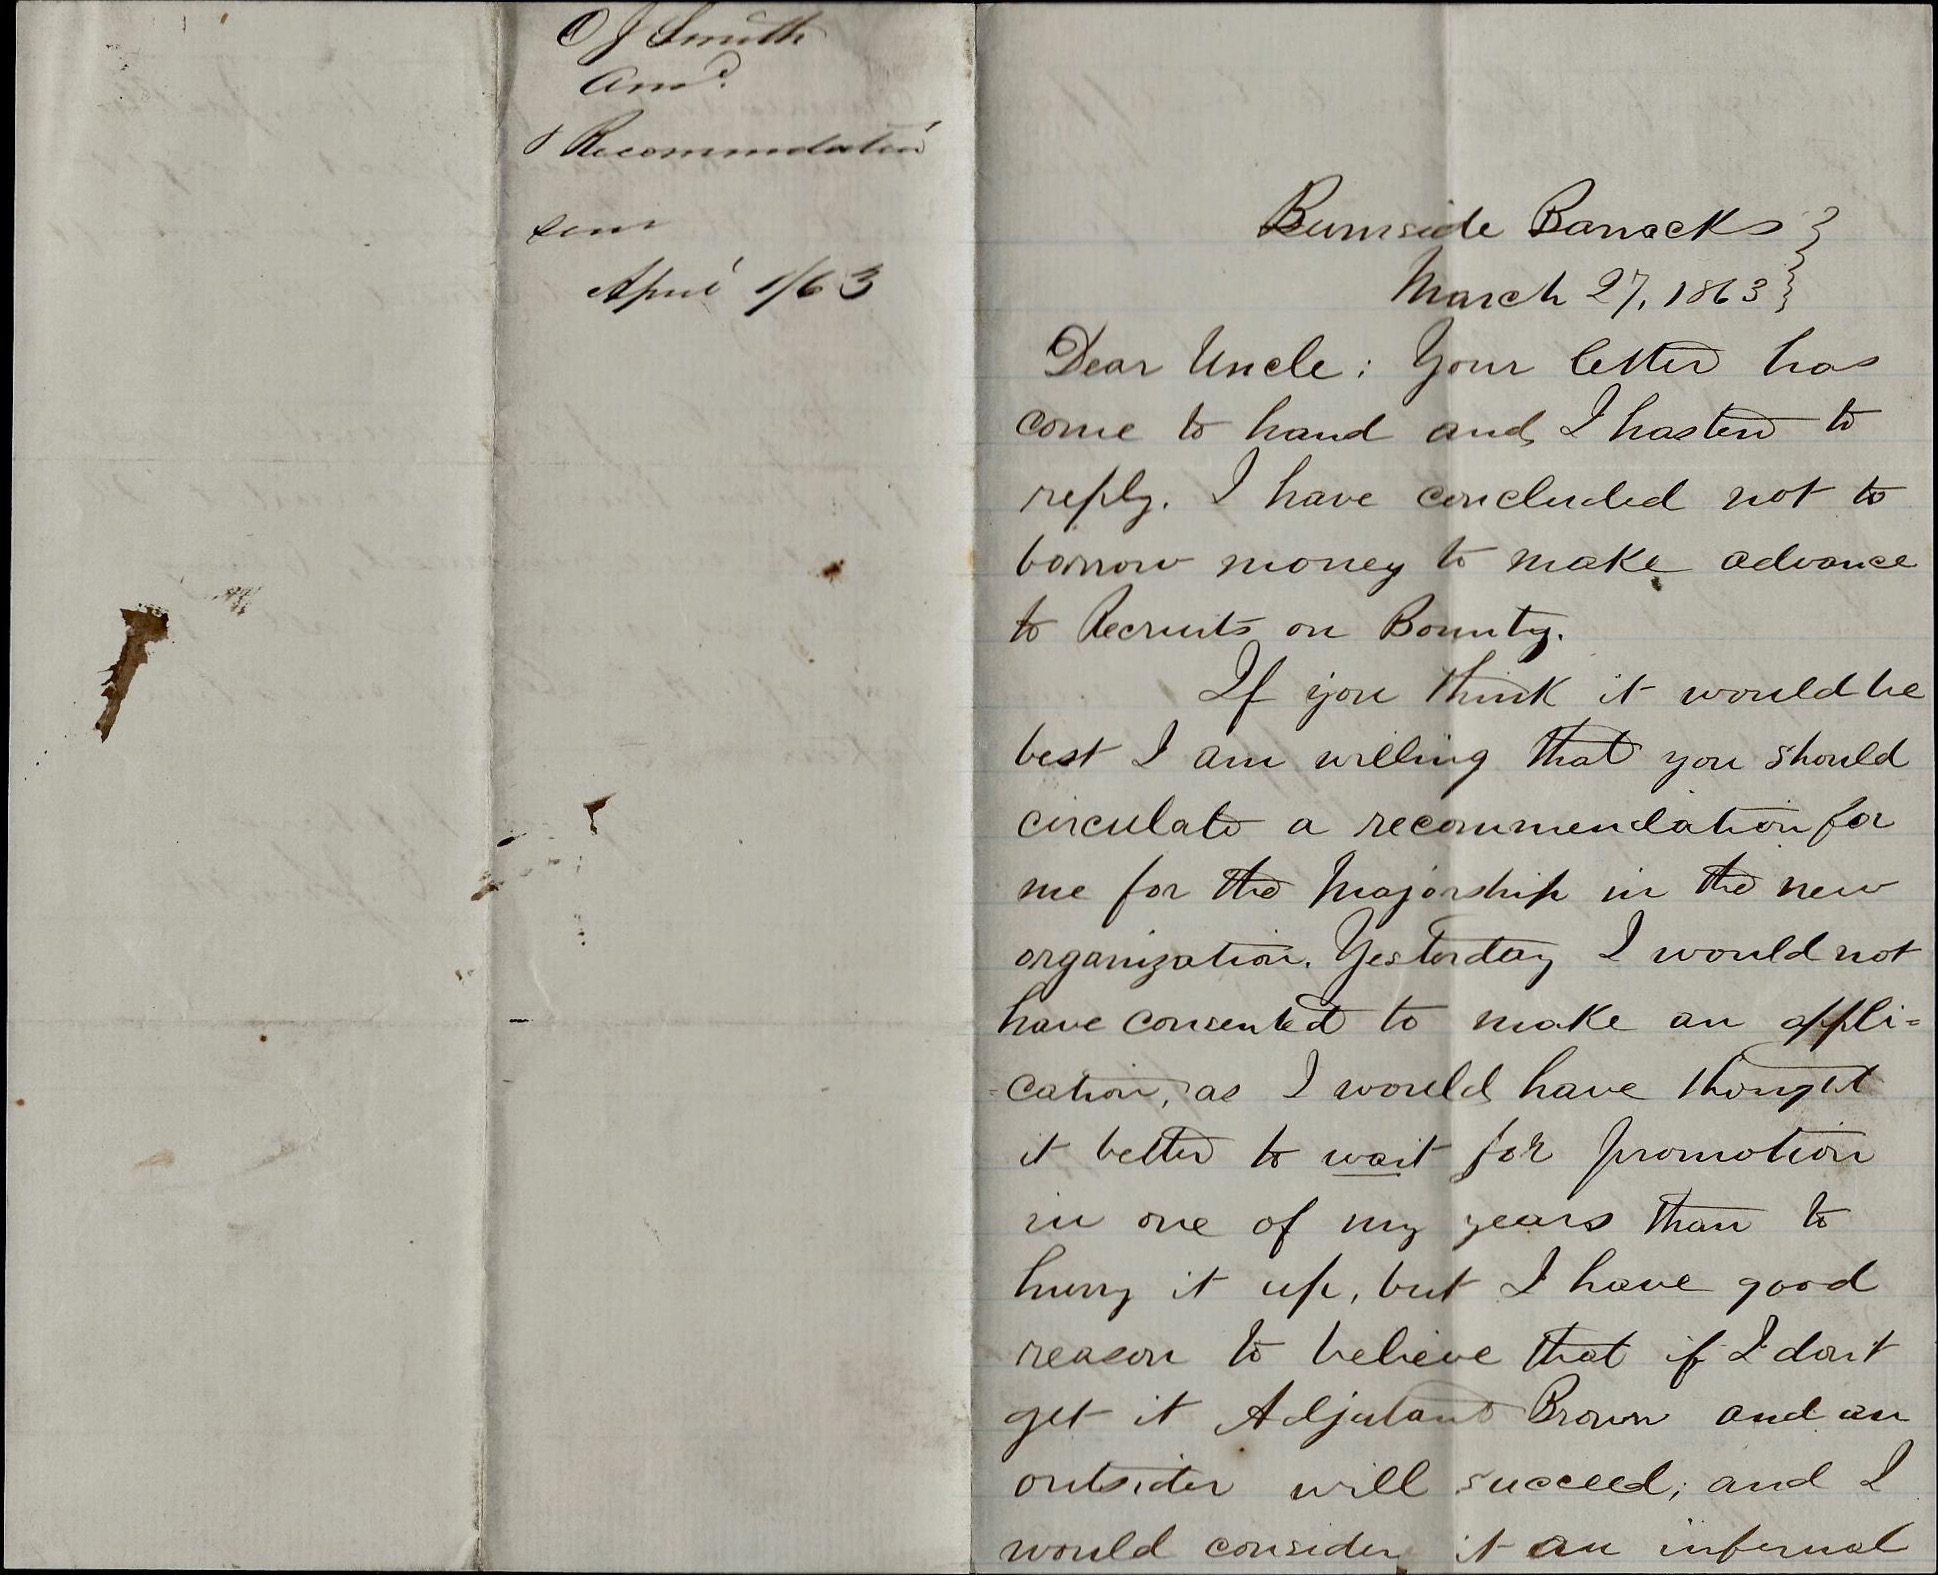 O J Smith
Ansd.
& Recommendation
sent
April 1/63
Burnside Barracks
March 27, 1863
Dear Uncle: Your letter has
come to hand and I hasten to
reply. I have concluded not to
borrow money to make advance
to Recruits on Bounty.
If you think it would be
best I am willing that you should
circulate a recommendation for
me for the Majorship in the new
organization. Yesterday I would not
have consented to make an appli=
-cation, as I would have thought
it better to wait for promotion
in one of my years than to
hurry it up, but I have good
reason to believe that if I don't
get it Adjutant Brown and an
outsider will succeed; and I
would consider it an infernal